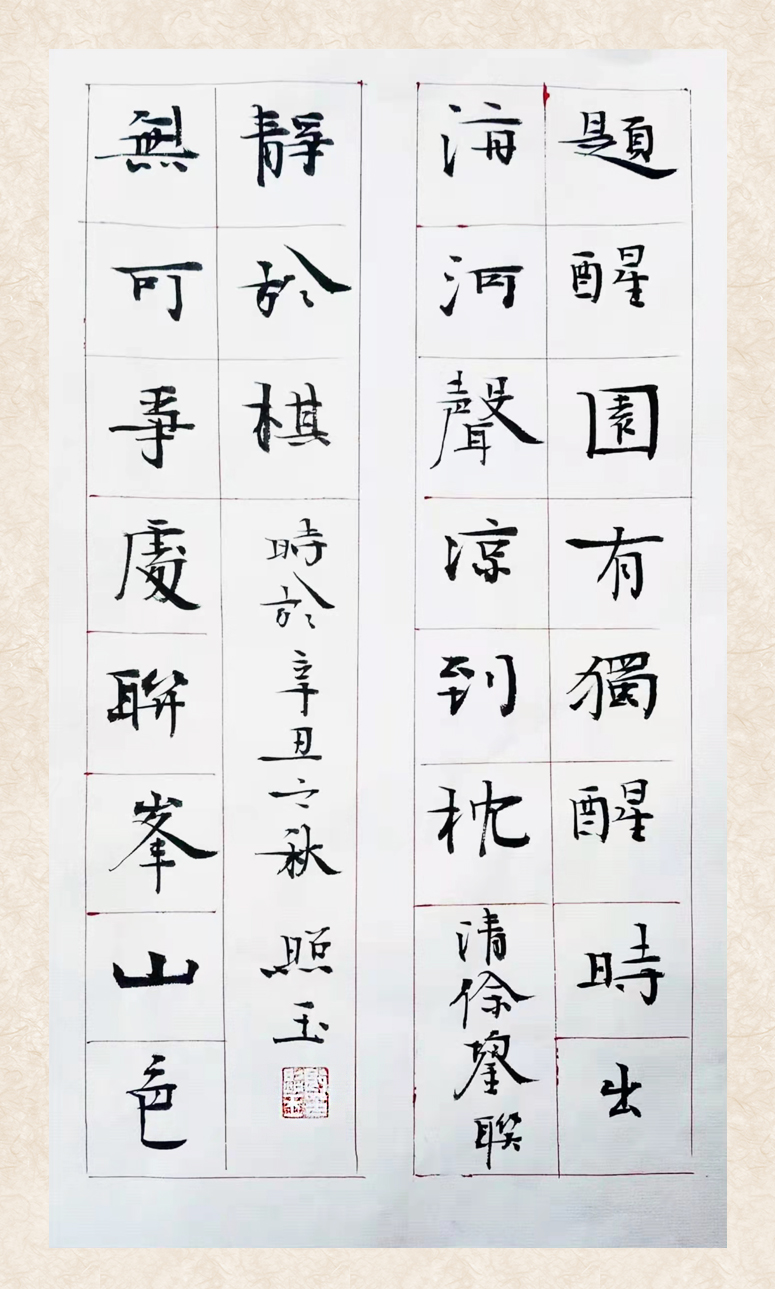 題醒園有獨醒時出
海河聲涼到枕
清徐鋆聯
無可事處聯峯山色
靜於棋
時於辛丑之秋 照玉